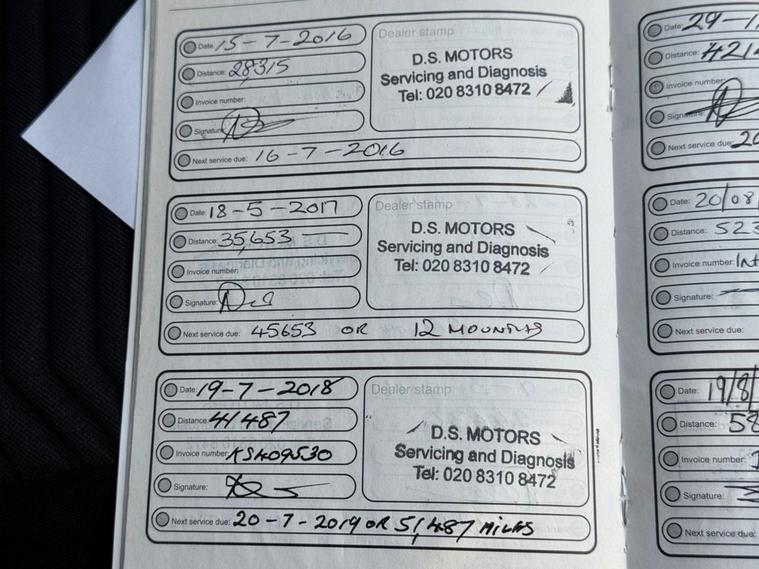 Date: 15-7-2016
Distance: 28,315
Invoice number:
Signature:
Next service due: 16-7-2016
Dealer stamp
D.S. MOTORS
Servicing and Diagnosis
Tel: 020 8310 8472
Date: 18-5-2017
Distance: 35,653
Invoice number:
Signature:
Next service due: 45653 OR 12 MOUNTHS
Dealer stamp
D.S. MOTORS
Servicing and Diagnosis
Tel: 020 8310 8472
Date: 19-7-2018
Distance: 41487
Invoice number: KS409530
Signature:
Next service due: 20-7-2019 OR 51,487 MILES
Dealer stamp
D.S. MOTORS
Servicing and Diagnosis
Tel: 020 8310 8472
Date: 29-1
Distance: 421
Invoice number:
Next service due: 20
Date: 20/08/
Distance: 523
Invoice number: Int
Signature:
Next service due:
Date: 19/8/
Distance: 58
Invoice number:
Signature:
Next service due: